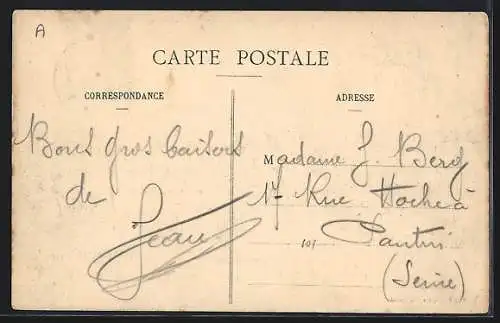 A
CARTE POSTALE
CORRESPONDANCE
ADRESSE
Bons gros baisers
de
Jean
Madame J. Berg
17 Rue Hoche à
101
Pantin
(Seine)